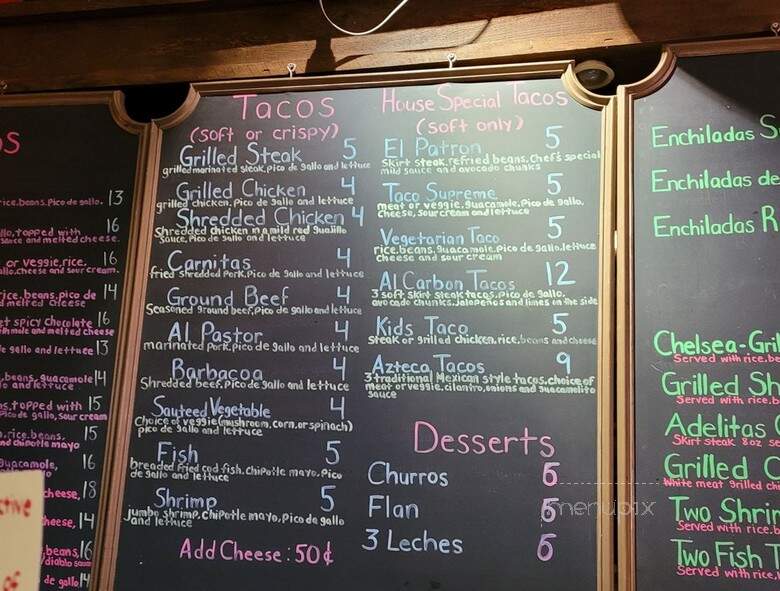 os
rice.beans.Pico de gallo. 13
llo, topped with 16
sauce and melted cheese.
or veggie, rice, 16
allo, cheese and sour cream.
rice, beans, pico de 14
d melted cheese
et spicy chocolate 16
ith mole and melted cheese
de gallo and lettuce 13
beans, guacamole 14
o and lettuce
ns, topped with 15
Pico de gallo, sour cream
.rice.beans. 15
and chipotle mayo
guacamole, 16
cheese, 18
heese, 14
beans, 16
/diablo sauce
de gallo. 14
ctive
of
Tacos
(soft or crispy)
Grilled Steak 5
grilled marinated steak, pico de gallo and lettuce
Grilled Chicken 4
grilled chicken, Pico de gallo and lettuce
Shredded Chicken 4
Shredded chicken in a mild red guajillo
sauce, Pico de gallo and lettuce
Carnitas 4
fried shredded Pork, Pico de gallo and lettuce
Ground Beef 4
Seasoned ground beef, pico de gallo and lettuce
Al Pastor 4
marinated Pork, Pico de gallo and lettuce
Barbacoa 4
Shredded beef, Pico de gallo and lettuce
Sauteed Vegetable 4
Choice of veggie (mushroom, corn, or spinach)
pico de gallo and lettuce
Fish 5
breaded fried cod fish, chipotle mayo, Pico
de gallo and lettuce
Shrimp 5
jumbo shrimp, chipotle mayo, Pico de gallo
and lettuce
Add Cheese: 50¢
House Special Tacos
(soft only)
El Patron 5
Skirt steak, refried beans, Chef's special
mild sauce and avocado chunks
Taco Supreme 5
meat or veggie, guacamole, Pico de gallo,
cheese, sour cream and lettuce
Vegetarian Taco 5
rice, beans, guacamole, Pico de gallo, lettuce
cheese and sour cream
Al Carbon Tacos 12
3 soft skirt steak tacos, pico de gallo,
avocado chunks, jalapeños and limes on the side
Kids Taco 5
Steak or grilled chicken, rice, beans and cheese
Azteca Tacos 9
3 traditional Mexican style tacos, choice of
meat or veggie, cilantro, onions and guacamolito
sauce
Desserts
Churros 6
Flan 6
3 Leches 6
menupix
Enchiladas S
Enchiladas de
Enchiladas R
Chelsea-Gril
Served with rice, be
Grilled Sh
Served with rice, b
Adelitas C
Skirt steak 8oz se
Grilled C
White meat grilled chi
Two Shrim
Served with rice, b
Two Fish T
Served with rice,